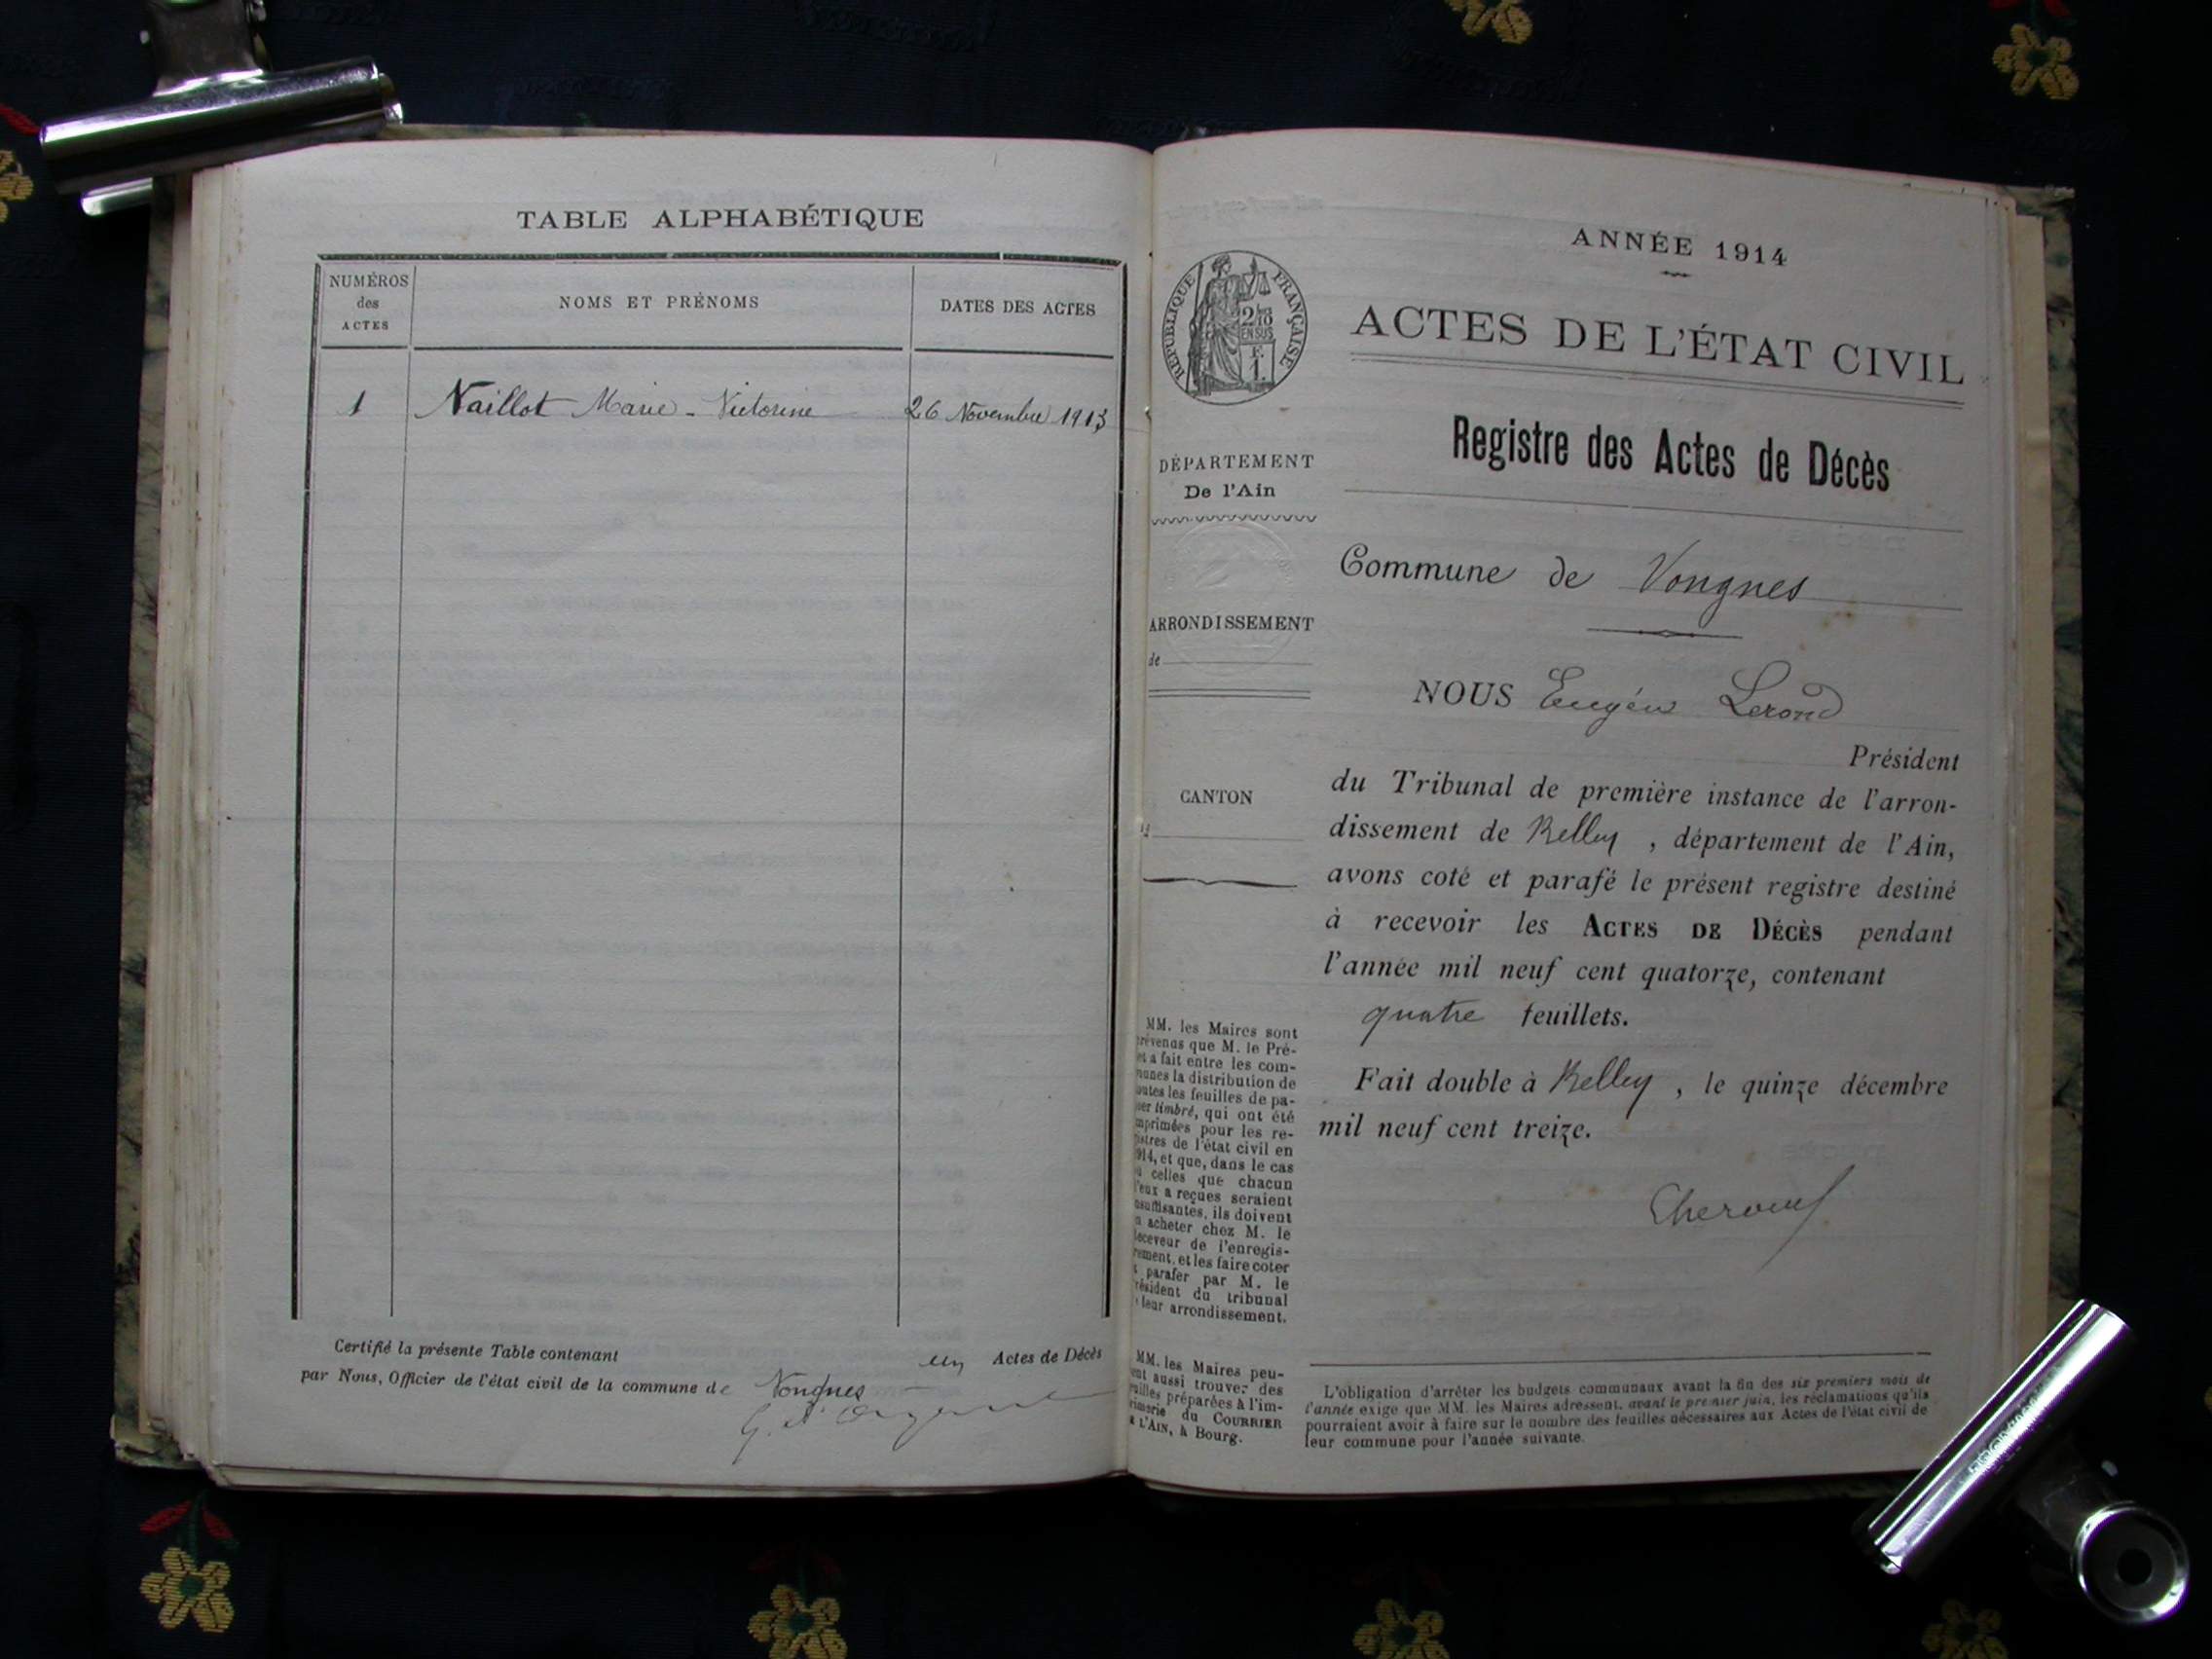 TABLE ALPHABÉTIQUE
NUMÉROS
des
ACTES
NOMS ET PRÉNOMS
DATES DES ACTES
1 Naillot Marie-Victorine 26 Novembre 1913
Certifié la présente Table contenant un Actes de Décès
par Nous, Officier de l'état civil de la commune de Vongnes
RÉPUBLIQUE FRANÇAISE
2/10
EN SUS
F.
1.
DÉPARTEMENT
De l'Ain
ARRONDISSEMENT
de
CANTON
MM. les Maires sont
prévenus que M. le Pré-
et a fait entre les com-
munes la distribution de
outes les feuilles de pa-
per timbré, qui ont été
mprimées pour les re-
gistres de l'état civil en
914, et que, dans le cas
ù celles que chacun
d'eux a reçues seraient
nsuffisantes, ils doivent
n acheter chez M. le
Receveur de l'enregis-
rement, et les faire coter
t parafer par M. le
résident du tribunal
leur arrondissement.
MM. les Maires peu-
ent aussi trouver des
euilles préparées à l'im-
rimerie du COURRIER
L'AIN, à Bourg.
ANNÉE 1914
ACTES DE L'ÉTAT CIVIL
Registre des Actes de Décès
Commune de Vongnes
NOUS Eugène Lerond
Président
du Tribunal de première instance de l'arron-
dissement de Belley, département de l'Ain,
avons coté et parafé le présent registre destiné
à recevoir les ACTES DE DÉCÈS pendant
l'année mil neuf cent quatorze, contenant
quatre feuillets.
Fait double à Belley, le quinze décembre
mil neuf cent treize.
L'obligation d'arrêter les budgets communaux avant la fin des six premiers mois de
l'année exige que MM. les Maires adressent, avant le premier juin, les réclamations qu'ils
pourraient avoir à faire sur le nombre des feuilles nécessaires aux Actes de l'état civil de
leur commune pour l'année suivante.